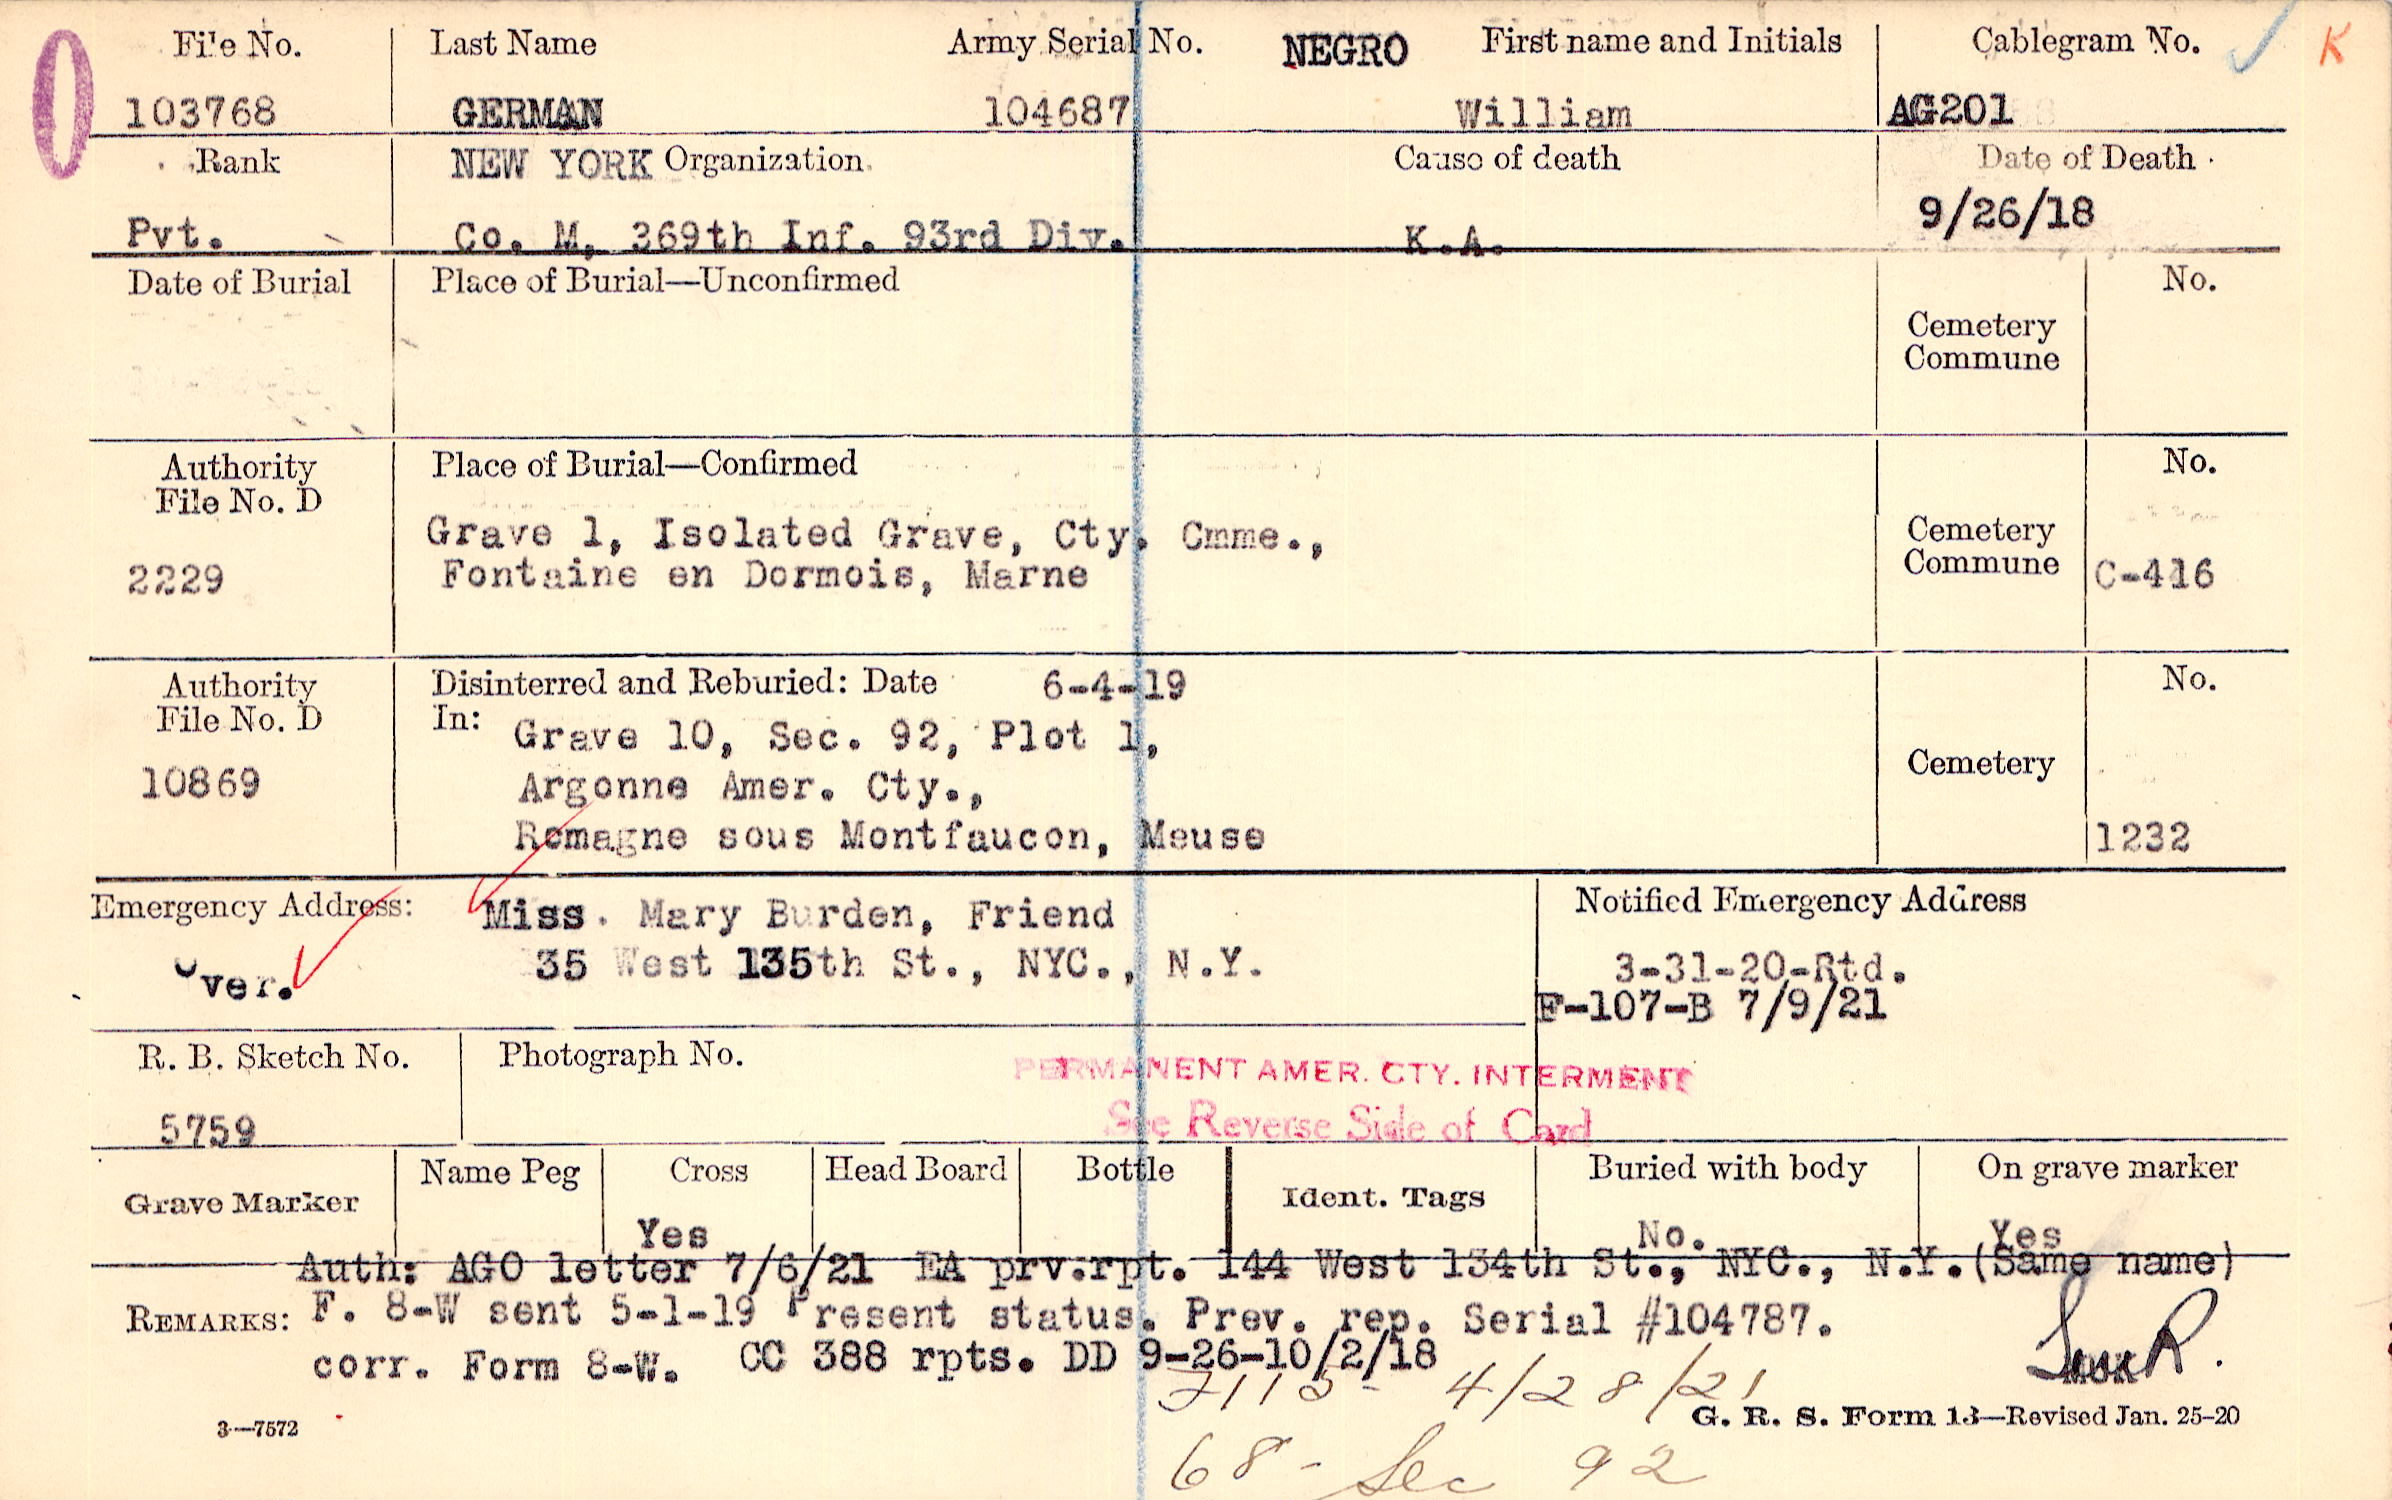 File No. Last Name Army Serial No. NEGRO First name and Initials Cablegram No. K
103768 GERMAN 104687 William AG201
Rank NEW YORK Organization Cause of death Date of Death
Pvt. Co. M, 369th Inf. 93rd Div. K.A. 9/26/18
Date of Burial Place of Burial—Unconfirmed No.
Cemetery
Commune
Authority Place of Burial—Confirmed No.
File No. D
Grave 1, Isolated Grave, Cty. Cmme., Cemetery
2229 Fontaine en Dormois, Marne Commune C-416
Authority Disinterred and Reburied: Date 6-4-19 No.
File No. D In: Grave 10, Sec. 92, Plot 1,
10869 Argonne Amer. Cty., Cemetery
Romagne sous Montfaucon, Meuse 1232
Emergency Address: Miss. Mary Burden, Friend Notified Emergency Address
Over. 35 West 135th St., NYC., N.Y. 3-31-20-Rtd.
F-107-B 7/9/21
R. B. Sketch No. Photograph No. PERMANENT AMER. CTY. INTERMENT
5759 See Reverse Side of Card
Grave Marker Name Peg Cross Head Board Bottle Ident. Tags Buried with body On grave marker
Yes No. Yes
Auth: AGO letter 7/6/21 EA prv.rpt. 144 West 134th St., NYC., N.Y.(Same name)
REMARKS: F. 8-W sent 5-1-19 Present status. Prev. rep. Serial #104787.
corr. Form 8-W. CC 388 rpts. DD 9-26-10/2/18
4/28/21
3—7572 G. R. S. Form 13—Revised Jan. 25-20
68 - Sec 92